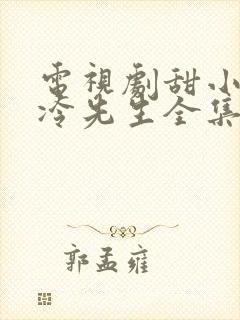 電視劇甜小
冷先生全集
郭孟雍